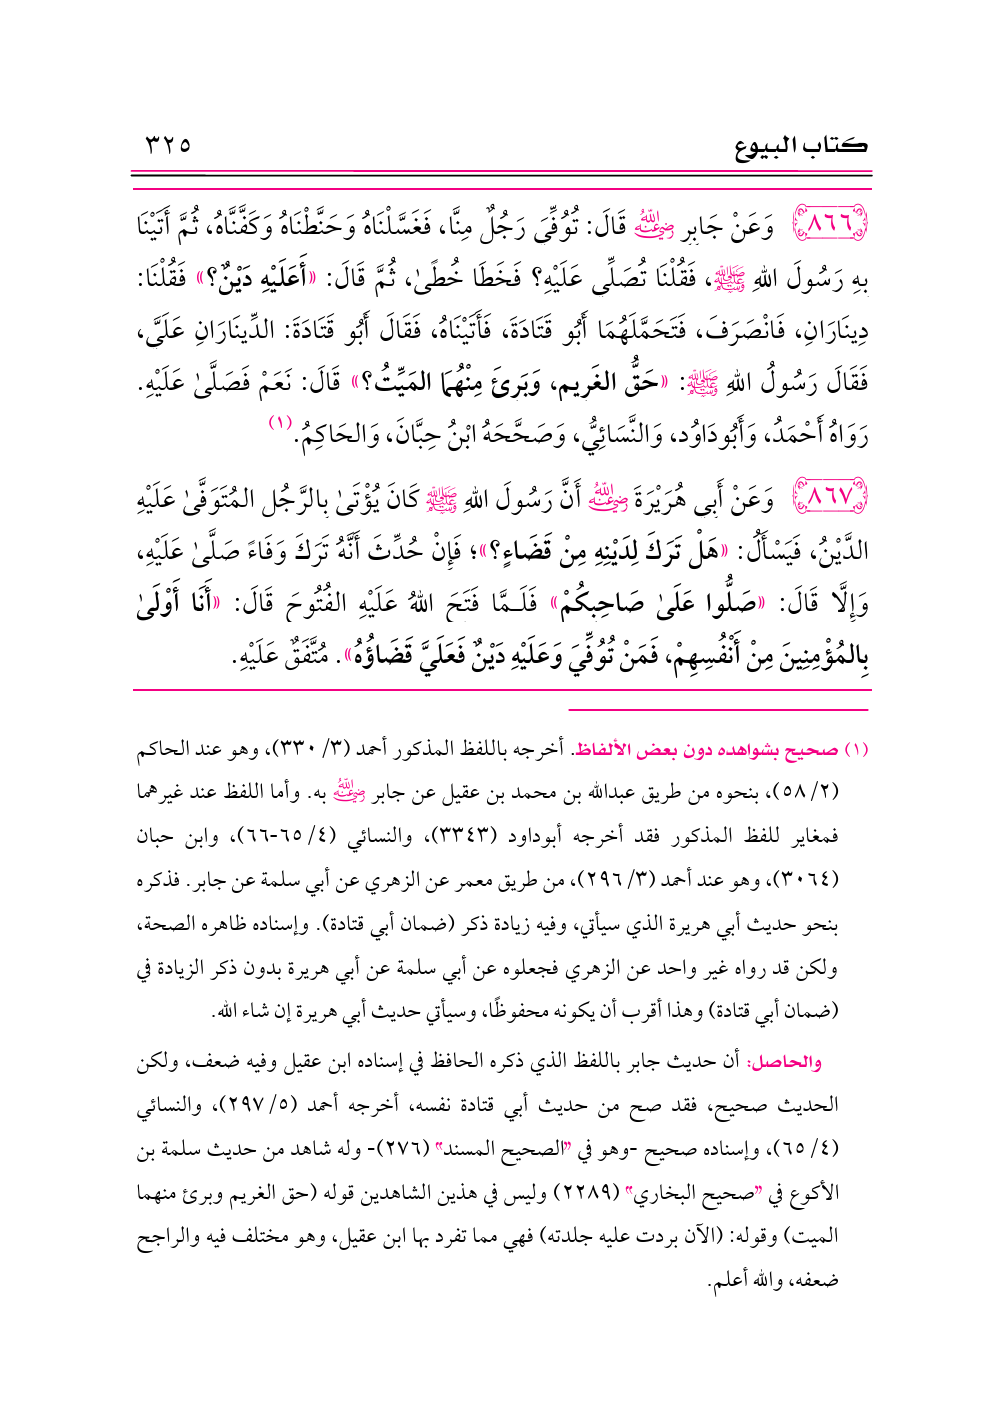 كتاب البيوع ٣٢٥
٨٦٦ وَعَنْ جَابِرٍ ﵁ قَالَ: تُوُفِّيَ رَجُلٌ مِنَّا، فَغَسَّلْنَاهُ وَحَنَّطْنَاهُ وَكَفَّنَّاهُ، ثُمَّ أَتَيْنَا
بِهِ رَسُولَ اللهِ ﷺ، فَقُلْنَا تُصَلِّي عَلَيْهِ؟ فَخَطَا خُطًى، ثُمَّ قَالَ: «أَعَلَيْهِ دَيْنٌ؟» فَقُلْنَا:
دِينَارَانِ، فَانْصَرَفَ، فَتَحَمَّلَهُمَا أَبُو قَتَادَةَ، فَأَتَيْنَاهُ، فَقَالَ أَبُو قَتَادَةَ: الدِّينَارَانِ عَلَيَّ،
فَقَالَ رَسُولُ اللهِ ﷺ: «حَقُّ الغَرِيمِ، وَبَرِئَ مِنْهُمَا المَيِّتُ؟» قَالَ: نَعَمْ فَصَلَّىٰ عَلَيْهِ.
رَوَاهُ أَحْمَدُ، وَأَبُودَاوُد، وَالنَّسَائِيُّ، وَصَحَّحَهُ ابْنُ حِبَّانَ، وَالحَاكِمُ.(١)
٨٦٧ وَعَنْ أَبِي هُرَيْرَةَ ﵁ أَنَّ رَسُولَ اللهِ ﷺ كَانَ يُؤْتَىٰ بِالرَّجُلِ المُتَوَفَّىٰ عَلَيْهِ
الدَّيْنُ، فَيَسْأَلُ: «هَلْ تَرَكَ لِدَيْنِهِ مِنْ قَضَاءٍ؟»؛ فَإِنْ حُدِّثَ أَنَّهُ تَرَكَ وَفَاءً صَلَّىٰ عَلَيْهِ،
وَإِلَّا قَالَ: «صَلُّوا عَلَىٰ صَاحِبِكُمْ» فَلَـمَّا فَتَحَ اللهُ عَلَيْهِ الفُتُوحَ قَالَ: «أَنَا أَوْلَىٰ
بِالمُؤْمِنِينَ مِنْ أَنْفُسِهِمْ، فَمَنْ تُوُفِّيَ وَعَلَيْهِ دَيْنٌ فَعَلَيَّ قَضَاؤُهُ». مُتَّفَقٌ عَلَيْهِ.
(١) صحيح بشواهده دون بعض الألفاظ. أخرجه باللفظ المذكور أحمد (٣/ ٣٣٠)، وهو عند الحاكم
(٢/ ٥٨)، بنحوه من طريق عبدالله بن محمد بن عقيل عن جابر ﵁ به. وأما اللفظ عند غيرهما
فمغاير للفظ المذكور فقد أخرجه أبوداود (٣٣٤٣)، والنسائي (٤/ ٦٥-٦٦)، وابن حبان
(٣٠٦٤)، وهو عند أحمد (٣/ ٢٩٦)، من طريق معمر عن الزهري عن أبي سلمة عن جابر. فذكره
بنحو حديث أبي هريرة الذي سيأتي، وفيه زيادة ذكر (ضمان أبي قتادة). وإسناده ظاهره الصحة،
ولكن قد رواه غير واحد عن الزهري فجعلوه عن أبي سلمة عن أبي هريرة بدون ذكر الزيادة في
(ضمان أبي قتادة) وهذا أقرب أن يكونه محفوظًا، وسيأتي حديث أبي هريرة إن شاء الله.
والحاصل: أن حديث جابر باللفظ الذي ذكره الحافظ في إسناده ابن عقيل وفيه ضعف، ولكن
الحديث صحيح، فقد صح من حديث أبي قتادة نفسه، أخرجه أحمد (٥/ ٢٩٧)، والنسائي
(٤/ ٦٥)، وإسناده صحيح -وهو في "الصحيح المسند" (٢٧٦)- وله شاهد من حديث سلمة بن
الأكوع في "صحيح البخاري" (٢٢٨٩) وليس في هذين الشاهدين قوله (حق الغريم وبرئ منهما
الميت) وقوله: (الآن بردت عليه جلدته) فهي مما تفرد بها ابن عقيل، وهو مختلف فيه والراجح
ضعفه، والله أعلم.